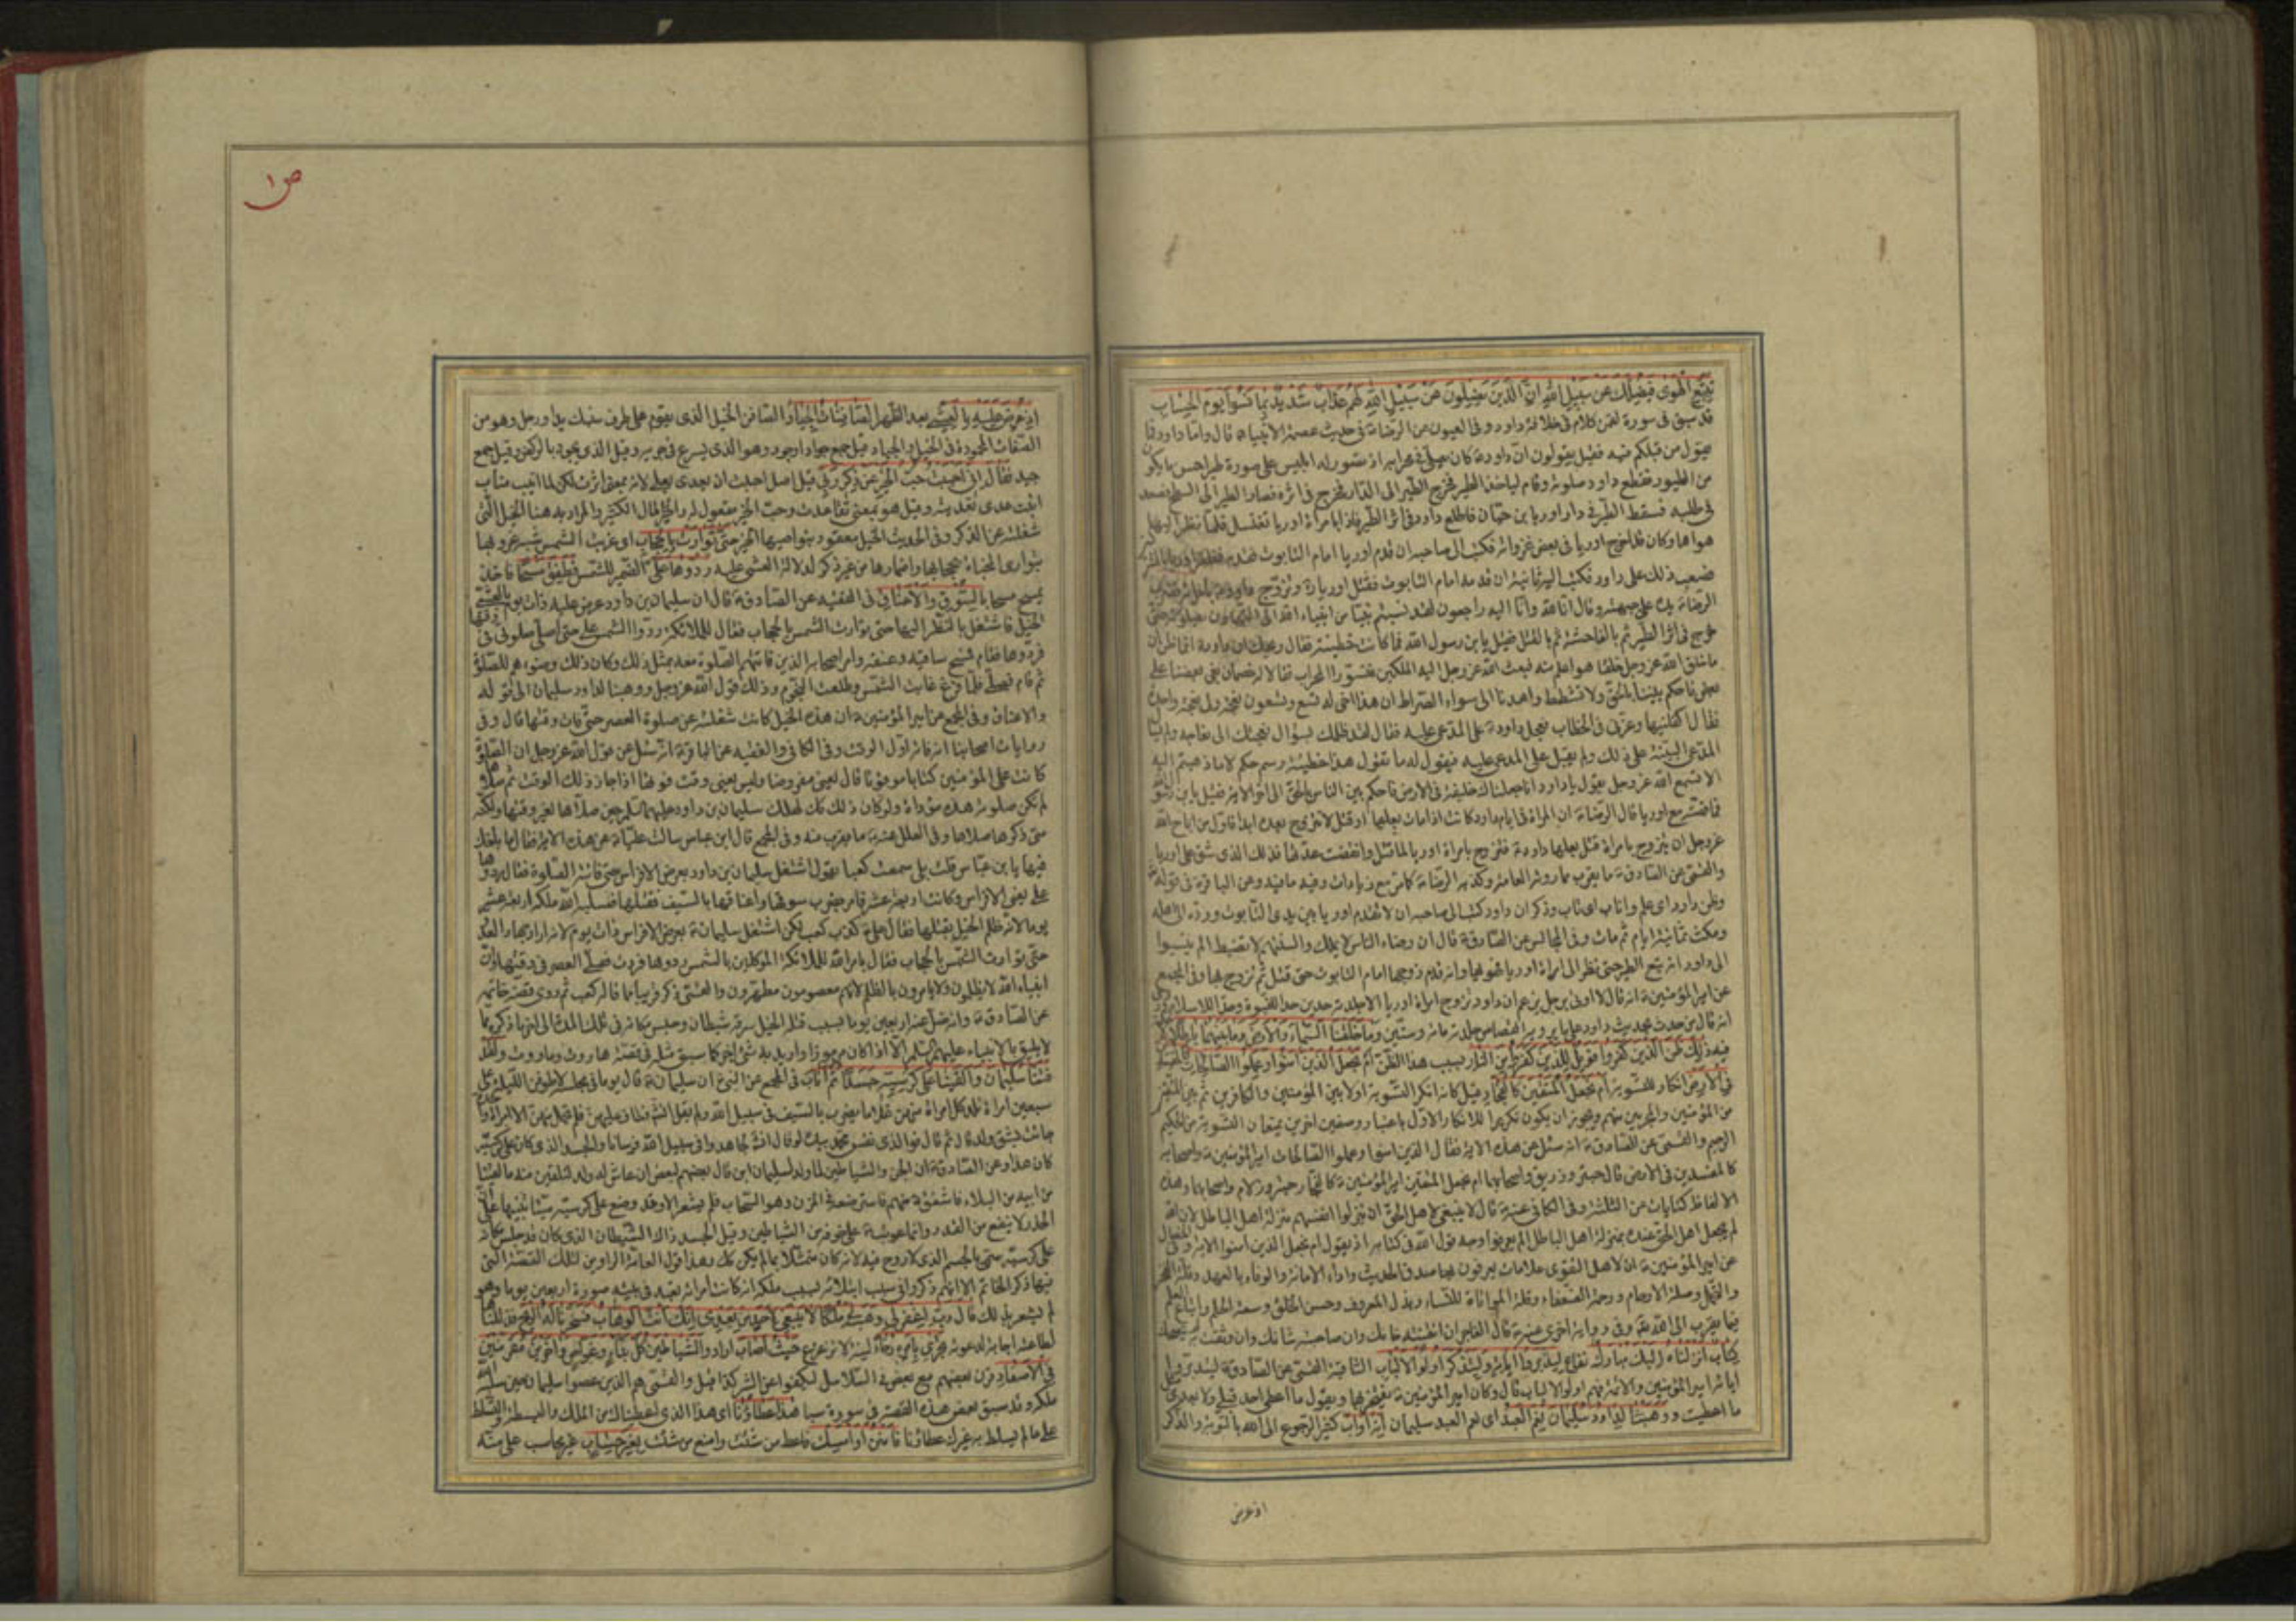 تتبع الهوى فيضلك عن سبيل الله ان الذين يضلون عن سبيل الله لهم عذاب شديد بما نسوا يوم الحساب
قد سبق فى سورة لقمن كلام فى خلافة داود وفى العيون عن الرضا ع فى حديث عصمة الانبياء قال واما داود فما
يقول من قبلكم فيه فقيل يقولون ان داود ع كان يصلى فى محرابه اذ تصور له ابليس على صورة طير احسن ما يكون
من الطيور فقطع داود صلوته وقام لياخذ الطير فخرج الطير الى الدار فخرج فى اثره فصار الطير الى السطح فصعد
فى طلبه فسقط الطير فى دار اوريا بن حنان فاطلع داود فى اثر الطير فاذا بامرأة اوريا تغتسل فلما نظر اليها
هواها وكان قد اخرج اوريا فى بعض غزواته فكتب الى صاحبه ان قدم اوريا امام التابوت فقدم فظفر اوريا بالمشركين
فصعب ذلك على داود فكتب اليه ثانية ان قدمه امام التابوت فقتل اوريا ره وتزوج داود بامرأته فضرب
الرضا ع يده على جبهته وقال انا لله وانا اليه راجعون لقد نسبتم نبيا من انبياء الله الى التهاون بصلوته حتى
خرج فى اثر الطير ثم بالفاحشة ثم بالقتل فقيل يا بن رسول الله فما كانت خطيئته فقال ويحك ان داود ع انما ظن ان
ما خلق الله عز وجل خلقا هو اعلم منه فبعث الله عز وجل اليه الملكين فتسورا المحراب فقالا خصمان بغى بعضنا على
بعض فاحكم بيننا بالحق ولا تشطط واهدنا الى سواء الصراط ان هذا اخى له تسع وتسعون نعجة ولى نعجة واحدة
فقال اكفلنيها وعزنى فى الخطاب فعجل داود ع على المدعى عليه فقال لقد ظلمك بسؤال نعجتك الى نعاجه ولم يسأل
المدعى البينة على ذلك ولم يقبل على المدعى عليه فيقول له ما تقول فكان هذا خطيئة رسم حكم لا ما ذهبتم اليه
الا تسمع الله عز وجل يقول يا داود انا جعلناك خليفة فى الارض فاحكم بين الناس بالحق الى اخر الاية فقيل يا بن رسول
فما قصته مع اوريا قال الرضا ع ان المرأة فى ايام داود كانت اذا مات بعلها او قتل لا تتزوج بعده ابدا فاول من اباح الله
عز وجل ان يتزوج بامرأة قتل بعلها داود ع فتزوج بامرأة اوريا لما قتل وانقضت عدتها فذلك الذى شق على اوريا
والقمى عن الصادق ع ما يقرب مما روته العامة وكذبه الرضا ع كما مر مع زيادات وفيه ما فيه وعن الباقر ع فى قوله
وظن داود اى علم واناب اى تاب وذكر ان داود كتب الى صاحبه ان لا تقدم اوريا بين يدى التابوت ورده الى اهله
ومكث ثمانية ايام ثم مات وفى المجالس عن الصادق ع قال ان رضاء الناس لا يملك والسنتهم لا تضبط الم ينسبوا
الى داود انه تبع الطير حتى نظر الى امرأة اوريا فهويها وانه قدم زوجها امام التابوت حتى قتل ثم تزوج بها وفى المجمع
عن امير المؤمنين ع انه قال لا اوتى برجل يزعم ان داود تزوج امرأة اوريا الا جلدته حدين حدا للنبوة وحدا للاسلام وروى
انه قال من حدث بحديث داود على ما يرويه القصاص جلدته مائة وستين وما خلقنا السماء والارض وما بينهما باطلا
ذلك ظن الذين كفروا فويل للذين كفروا من النار بسبب هذا الظن ام نجعل الذين امنوا وعملوا الصالحات كالمفسدين
فى الارض انكار للتسوية ام نجعل المتقين كالفجار قيل كانه انكر التسوية اولا بين المؤمنين والكافرين ثم بين المتقين
من المؤمنين والمجرمين منهم ويجوز ان يكون تكريرا للانكار الاول باعتبار وصفين اخرين يمنعان التسوية من الحكيم
الرحيم والقمى عن الصادق ع انه سئل عن هذه الاية فقال الذين امنوا وعملوا الصالحات امير المؤمنين ع واصحابه
كالمفسدين فى الارض قال حبتر وزريق واصحابهما ام نجعل المتقين امير المؤمنين ع كالفجار حبتر ودلام واصحابهما وهذه
الالفاظ كنايات عن الثلثة وفى الكافى عنه ع قال لا ينبغى لاهل الحق ان ينزلوا انفسهم منزلة اهل الباطل لان الله
لم يجعل اهل الحق عنده بمنزلة اهل الباطل الم يعرفوا وجه قول الله فى كتابه اذ يقول ام نجعل الذين امنوا الاية وفى الخصال
عن امير المؤمنين ع ان لاهل التقوى علامات يعرفون بها صدق الحديث واداء الامانة والوفاء بالعهد وقلة الفخر
والتجمل وصلة الارحام ورحمة الضعفاء وقلة المواتاة للنساء وبذل المعروف وحسن الخلق وسعة الحلم واتباع العلم
فيما يقرب الى الله تع وفى رواية اخرى عنه ع قال الفاجر ان ائتمنته خانك وان صاحبته شانك وان وثقت به لم ينصحك
كتاب انزلناه اليك مبارك نفاع ليدبروا اياته وليتذكر اولوا الالباب الثاقبة القمى عن الصادق ع ليدبروا
اياته امير المؤمنين والائمة فهم اولوا الالباب قال وكان امير المؤمنين ع يفتخر بها ويقول ما اعطى احد قبلى ولا بعدى
ما اعطيت ووهبنا لداود سليمان نعم العبد اى نعم العبد سليمان انه اواب كثير الرجوع الى الله بالتوبة والذكر
اذ عرض
ص ١
اذ عرض عليه بالعشى بعد الظهر الصافنات الجياد الصافن الخيل الذى يقوم على طرف سنبك يد او رجل وهو من
الصفات المحمودة فى الخيل والجياد قيل جمع جواد او جود وهو الذى يسرع فى جريه وقيل الذى يجود بالركض وقيل جمع
جيد فقال انى احببت حب الخير عن ذكر ربى قيل اصل احببت ان يعدى بعلى لانه بمعنى اثرت لكن لما انيب مناب
انبت عدى تعديته وقيل هو بمعنى تقاعدت وحب الخير مفعول له والخير المال الكثير والمراد به هنا الخيل التى
شغلته عن الذكر وفى الحديث الخيل معقود بنواصيها الخير حتى توارت بالحجاب اى غربت الشمس شبه غروبها
بتوارى المخباة بحجابها واضمارها من غير ذكر لدلالة العشى عليه ردوها على الضمير للشمس فطفق مسحا فاخذ
يمسح مسحا بالسوق والاعناق فى الفقيه عن الصادق ع قال ان سليمان بن داود عرض عليه ذات يوم بالعشى
الخيل فاشتغل بالنظر اليها حتى توارت الشمس بالحجاب فقال للملائكة ردوا الشمس على حتى اصلى صلوتى فى وقتها
فردوها فقام فمسح ساقيه وعنقه وامر اصحابه الذين فاتتهم الصلوة معه بمثل ذلك وكان ذلك وضوءهم للصلوة
ثم قام فصلى فلما فرغ غابت الشمس وطلعت النجوم وذلك قول الله عز وجل ووهبنا لداود سليمان الى قوله
والاعناق وفى المجمع عن امير المؤمنين ع ان هذه الخيل كانت شغلته عن صلوة العصر حتى فات وقتها قال وفى
روايات اصحابنا انه فاته اول الوقت وفى الكافى والفقيه عن الباقر ع انه سئل عن قول الله عز وجل ان الصلوة
كانت على المؤمنين كتابا موقوتا قال يعنى مفروضا وليس يعنى وقت فوتها اذا جاز ذلك الوقت ثم صلاها
لم تكن صلوته هذه مؤداة ولو كان ذلك كذلك لهلك سليمان بن داود عليهما السلم حين صلاها لغير وقتها ولكنه
متى ذكرها صلاها وفى العلل عنه ع ما يقرب منه وفى المجمع قال ابن عباس سالت عليا ع عن هذه الاية فقال ما بلغك
فيها يا بن عباس قلت بلى سمعت كعبا يقول اشتغل سليمان بن داود بعرض الافراس حتى فاتته الصلوة فقال ردوها
على يعنى الافراس وكانت اربعة عشر فامر بضرب سوقها واعناقها بالسيف فقتلها فسلبه الله ملكه اربعة عشر
يوما لانه ظلم الخيل بقتلها فقال على ع كذب كعب لكن اشتغل سليمان ع بعرض الافراس ذات يوم لانه اراد جهاد العدو
حتى توارت الشمس بالحجاب فقال بامر الله للملائكة الموكلين بالشمس ردوها فردت فصلى العصر فى وقتها وان
انبياء الله لا يظلمون ولا يامرون بالظلم لانهم معصومون مطهرون والقمى ذكر قريبا مما قاله كعب ثم روى قصة خاتمه
عن الصادق ع وانه ضل عنه اربعين يوما بسبب قتله الخيل سرقه شيطان وجلس مكانه فى تلك المدة الى اخر ما ذكره مما
لا يليق بالانبياء عليهم السلم الا اذا كان مرموزا واريد به شئ اخر كما سبق مثله فى قصة هاروت وماروت ولقد
فتنا سليمان والقينا على كرسيه جسدا ثم اناب فى المجمع عن النبى ان سليمان ع قال يوما فى مجلسه لاطوفن الليلة على
سبعين امرأة تلد كل امرأة منهن غلاما يضرب بالسيف فى سبيل الله ولم يقل انشاء الله فطاف عليهن فلم تحمل منهن الا امرأة واحدة
جاءت بشق ولد قال ثم قال فوالذى نفس محمد بيده لو قال انشاء الله لجاهدوا فى سبيل الله فرسانا والجسد الذى كان على كرسيه
كان هذا وعن الصادق ع ان الجن والشياطين لما ولد لسليمان ابن قال بعضهم لبعض ان عاش له ولد لنلقين منه ما لقينا
من ابيه من البلاء فاشفق ع منهم فاسترضعه فى المزن وهو السحاب فلم يشعر الا وقد وضع على كرسيه ميتا تنبيها على ان
الحذر لا ينفع من القدر وانما عوتب ع على خوفه من الشياطين وقيل الجسد ذاك الشيطان الذى كان قد جلس مكانه
على كرسيه سمى بالجسم الذى لا روح فيه لانه كان متمثلا بما لم يكن كذلك وهذا قول العامة الراوين لتلك القصة التى
فيها ذكر الخاتم الا انهم ذكروا فى سبب ابتلائه بسلب ملكه انه كانت امرأته تعبد فى بيته صورة اربعين يوما وهو
لم يشعر بذلك قال رب اغفر لى وهب لى ملكا لا ينبغى لاحد من بعدى انك انت الوهاب فسخرنا له الريح فذللناها
لطاعته اجابة لدعوته تجرى بامره رخاء لينة لا تزعزع حيث اصاب اراد والشياطين كل بناء وغواص واخرين مقرنين
فى الاصفاد قرن بعضهم مع بعض فى السلاسل ليكفوا عن الشر كذا قيل والقمى هم الذين عصوا سليمان حين سلبه الله
ملكه وقد سبق بعض هذه القصة فى سورة سبا هذا عطاؤنا اى هذا الذى اعطيناك من الملك والبسطة والتسلط
على ما لم يسلط به غيرك عطاؤنا فامنن او امسك فاعط من شئت وامنع من شئت بغير حساب غير محاسب على منه